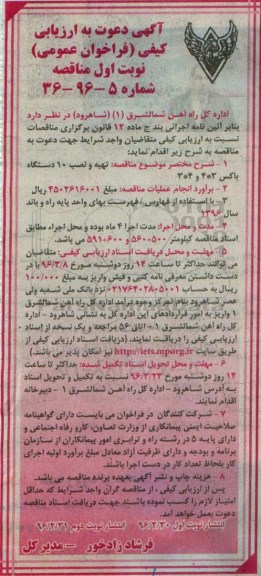 آگهی دعوت به ارزیابی
کیفی (فراخوان عمومی)
نوبت اول مناقصه
شماره ۵ - ۹۶ - ۳۶
اداره کل راه آهن شمالشرق (۱) (شاهرود) در نظر دارد
بنابر آئین نامه اجرایی بند ج ماده ۱۲ قانون برگزاری مناقصات
نسبت به ارزیابی کیفی متقاضیان واجد شرایط جهت دعوت به
مناقصه به شرح زیر اقدام نماید:
۱ - شرح مختصر موضوع مناقصه: تهیه و نصب ۱۰ دستگاه
باکس ۴۰۳ و ۳۰۴
۲ - برآورد انجام عملیات مناقصه: مبلغ ۴۵۰۲۶۱۶۰۰۱ ریال
۳ - با استفاده از فهارس / فهرست بهای واحد پایه راه و باند
سال ۱۳۹۶
۴ - مدت و محل اجرا: مدت اجرا ۴ ماه بوده و محل اجراء مطابق
اسناد مناقصه کیلومتر ۵۰۰+۵۶۰ و ۶۰۰+۵۹۱ می باشد.
۵ - مهلت و محل دریافت اسناد ارزیابی کیفی: متقاضیان
می توانند حداکثر تا ساعت ۱۴ روز دوشنبه مورخ ۹۶/۳/۸ با در
دست داشتن معرفی نامه کتبی و فیش واریز به مبلغ ۱۶۰/۰۰۰
ریال به حساب ۰۲۱۷۶۴۰۲۸۰۵۰۰۱ نزد بانک ملی شعبه ولی
عصر شاهرود بنام تمرکز وجوه درآمد اداره کل راه آهن شمالشرق
۱ واریز به امور قراردادهای این اداره کل به نشانی شاهرود - اداره
کل راه آهن شمالشرق ۱ - اتاق ۵۶ مراجعه و یک نسخه از اسناد
ارزیابی کیفی را دریافت نمایند. (دریافت اسناد ارزیابی کیفی از
طریق سایت http://iets.mporg.ir نیز امکان پذیر می باشد.)
۶ - مهلت و محل تحویل اسناد تکمیل شده: حداکثر تا ساعت
۱۴ روز دوشنبه مورخ ۹۶/۳/۲۲ نسبت به تکمیل و تحویل اسناد
به آدرس شاهرود - اداره کل راه آهن شمالشرق ۱ - دبیرخانه
اقدام نمایند.
۷ - شرکت کنندگان در فراخوان می بایست دارای گواهینامه
صلاحیت ایمنی پیمانکاری از وزارت تعاون، کار و رفاه اجتماعی و
دارای پایه ۵ در رشته راه و ترابری امور پیمانکاران از سازمان
برنامه و بودجه و دارای ظرفیت آزاد معادل مبلغ برآورد اولیه اجرای
کار بلحاظ تعداد کار در دست اجرا باشند.
۸ - هزینه چاپ و نشر آگهی بعهده برنده مناقصه می باشد.
پس از ارزیابی کیفی، از مناقصه گران واجد شرایط که حداقل
امتیاز لازم را کسب نموده باشند جهت دریافت اسناد مناقصه
دعوت بعمل خواهد آمد.
انتشار نوبت اول ۹۶/۲/۳۰ انتشار نوبت دوم ۹۶/۲/۳۱
فرشاد زادخور - مدیر کل